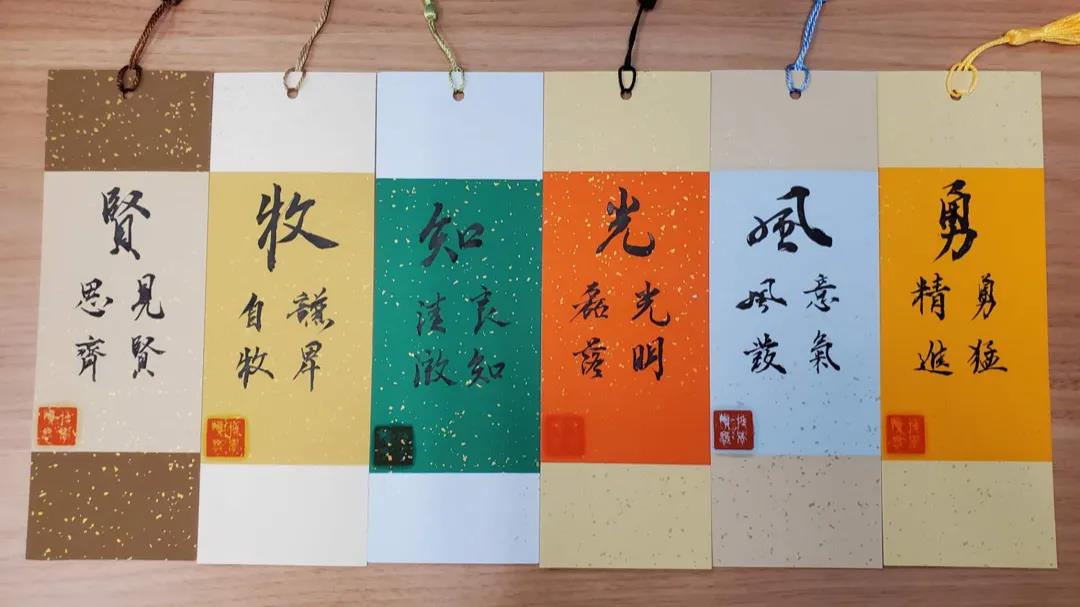 賢
見賢
思齊
牧
謙卑
自牧
知
良知
清澈
光
光明
磊落
風
意氣
風發
勇
勇猛
精進